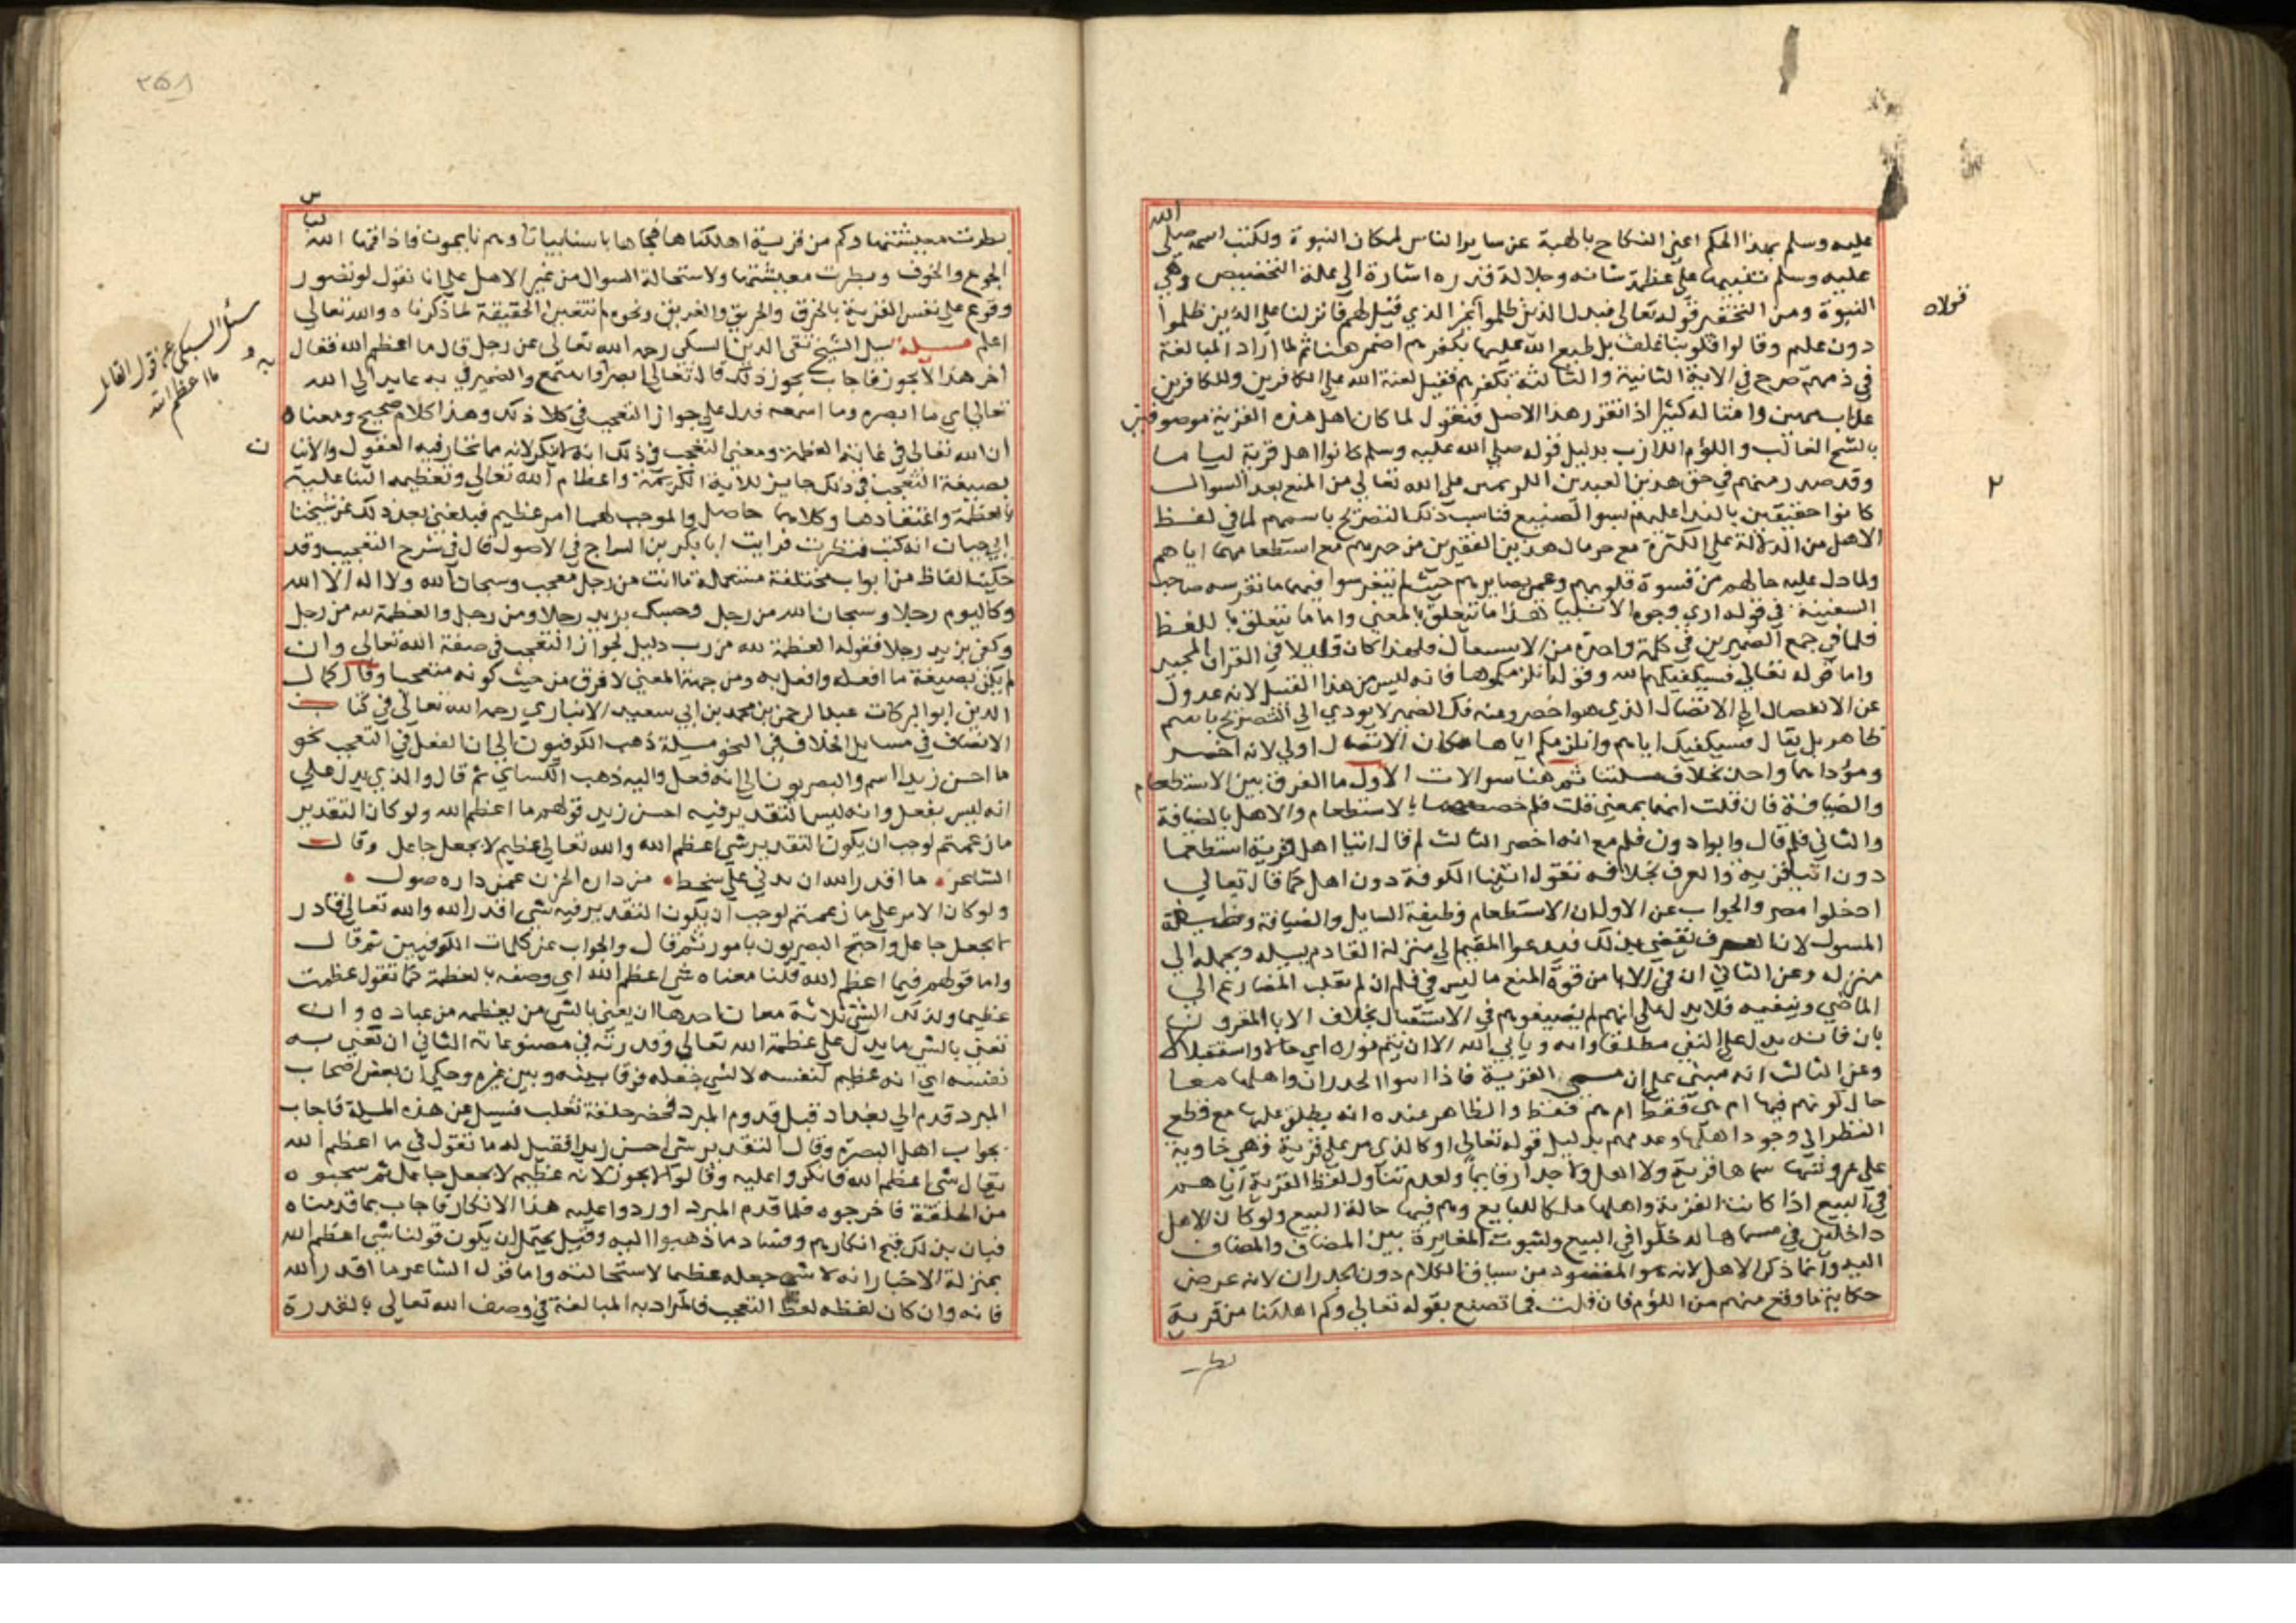 الله
عليه وسلم بهذا الحكم اعني النكاح بالهبة عن ساير الناس لمكان النبوة ولكتب اسمه صلى
عليه وسلم تنبيها على عظمة شانه وجلالة قدره اشارة الى علة التخصيص وهي
النبوة ومن التحقير قوله تعالى فبدل الذين ظلموا غير الذي قيل لهم فانزلنا على الذين ظلموا
دون عليهم وقالوا قلوبنا غلف بل طبع الله عليها بكفرهم اضمر هنا ثم لما اراد المبالغة
في ذمهم صرح في الاية الثانية والثالثة بكفرهم فقيل لعنة الله على الكافرين وللكافرين
عذاب مهين وامثاله كثيرا اذا تقرر هذا الاصل فنقول لما كان اهل هذه القرية موصوفين
بالشح الغالب واللؤم اللازب بدليل قوله صلى الله عليه وسلم كانوا اهل قرية لياما
وقد صدر منهم في حق هذين العبدين الكريمين على الله تعالى من المنع بعد السوال
كانوا حقيقين بالندا عليهم بسوا الصنيع فناسب ذلك التصريح باسمهم لما في لفظ
الاهل من الدلالة على الكثرة مع حرمان هذين الفقيرين من خيرهم مع استطعامهما اياهم
ولما دل عليه حالهم من قسوة قلوبهم وعمى بصايرهم حيث لم يتفرسوا فيهما ما تفرسه صاحب
السفينة في قوله ارى وجوه الانبيا هذا ما يتعلق بالمعنى واما ما يتعلق باللفظ
فلما في جمع الضميرين في كلمة واحدة من الاستثقال ولهذا كان قليلا في القران المجيد
واما قوله تعالى فسيكفيكهم الله وقوله انلزمكموها فانه ليس من هذا القبيل لانه عدول
عن الانفصال الى الاتصال الذي هو اخصر وعند فك الضمير لا يودي الى التصريح باسم
ظاهر بل يقال فسيكفيك اياهم وانلزمكم اياها فكان الاتصال اولى لانه اخصر
ومؤداهما واحد بخلاف مسلتنا ثم هنا سوالات الاول ما الفرق بين الاستطعام
والضيافة فان قلت انهما بمعنى قلت فلم خصصهما بالاستطعام والاهل بالضيافة
والثاني فلم قال فابوا دون فلم مع انه اخصر الثالث لم قال اتيا اهل قرية استطعما
دون اتيا قرية والعرف بخلافه تقول اتيت الكوفة دون اهل كما قال تعالى
ادخلوا مصر والجواب عن الاول ان الاستطعام وظيفة السايل والضيافة وظيفة
المسول لان العرف يقضي بذلك فيدعوا المقيم الى منزله القادم يسله ويحمله الى
منزله وعن الثاني ان في الابا من قوة المنع ما ليس في فلم لان لم تقلب المضارع الى
الماضي وتنفيه فلا يدل على انهم لم يضيفوهم في الاستقبال بخلاف الابا المقرون
بان فانه يدل على النفي مطلقا وابه ويابى الله الا ان يتم نوره اي حالا واستقبالا
وعن الثالث انه مبني على ان مسمى القرية ماذا اهو الجدران واهلها معا
حال كونهم فيها ام هي فقط ام هم فقط والظاهر عنده انه يطلق عليها مع قطع
النظر الى وجود اهلها وعدمهم بدليل قوله تعالى او كالذي مر على قرية وهي خاوية
على عروشها سماها قرية ولا اهل ولا جدار قايما ولعدم تناول لفظ القرية اياهم
في البيع اذا كانت القرية واهلها ملكا للبايع وهم فيها حالة البيع ولو كان الاهل
داخلين في مسماها لدخلوا في البيع ولثبوت المغايرة بين المضاف والمضاف
اليه وانما ذكر الاهل لانه هو المقصود من سياق الكلام دون الجدران لانه عرض
حكاية ما وقع منهم من اللؤم فان قلت فما تصنع بقوله تعالى وكم اهلكنا من قرية
بطر
قولاه
٢
٢٥٨
بطرت معيشتها وكم من قرية اهلكناها فجاها باسنا بياتا وهم نايمون فاذاقها الله لباس
الجوع والخوف وبطرت معيشتها ولاستحالة السوال من غير الاهل على انا نقول لو تصور
وقوع على نفس القرية بالخرق والحريق والغريق ونحوه لم تتعين الحقيقة لما ذكرناه والله تعالى
اعلم مسلة سيل الشيخ تقى الدين السبكي رحمه الله تعالى عن رجل قال ما اعظم الله فقال
اخر هذا لا يجوز فاجاب يجوز ذلك قال تعالى ابصر به واسمع والضمير في به عايد الى الله
تعالى اي ما ابصره وما اسمعه فدل على جواز التعجب في كلا ذلك وهذا كلام صحيح ومعناه
ان الله تعالى في غاية العظمة ومعنى التعجب في ذلك انه لا ينكر لانه مما تحار فيه العقول والاتيان
بصيغة التعجب في ذلك جايز للاية الكريمة واعظام الله تعالى وتعظيمه الثنا عليه
بالعظمة واعتقادها وكلاهما حاصل والموجب لهما امر عظيم فبلغني بعد ذلك عن شيخنا
ابي حيان انه كتب فنظرت فرايت ابا بكر بن السراج في الاصول قال في شرح التعجب وقد
حكيت الفاظ من ابواب مختلفة مستعملة ما انت من رجل معجب وسبحان الله ولا اله الا الله
وكاليوم رجلا وسبحان الله من رجل وحسبك بزيد رجلا ومن رجل والعظمة لله من رجل
وكفى بزيد رجلا فقوله العظمة لله من رب دليل لجواز التعجب في صفة الله تعالى وان
لم يكن بصيغة ما افعله وافعل به ومن جهة المعنى لا فرق من حيث كونه متعجبا وقال كمال
الدين ابو البركات عبد الرحمن بن محمد بن ابي سعيد الانباري رحمه الله تعالى في كتاب
الانصاف في مسايل الخلاف في النحو مسيلة ذهب الكوفيون الى ان افعل في التعجب نحو
ما احسن زيدا اسم والبصريون الى انه فعل واليه ذهب الكساي ثم قال والذي يدل على
انه ليس بفعل وانه ليس التقدير فيه احسن زيد قولهم ما اعظم الله ولو كان التقدير
ما زعمتم لوجب ان يكون التقدير شي اعظم الله والله تعالى عظيم لا بجعل جاعل وقال
الشاعر ما اقدر الله ان يدني على شحط من داره الحزن عمن داره صول
ولو كان الامر على ما زعمتم لوجب ان يكون التقدير فيه شي اقدر الله والله تعالى قادر
لا بجعل جاعل واحتج البصريون بامور ثم قال والجواب عن كلمات الكوفيين ثم قال
واما قولهم فيما اعظم الله قلنا معناه شي اعظم الله اي وصفه بالعظمة كما تقول عظمت
عظيما ولذلك الشي ثلاثة معان احدها ان يعنى بالشي من يعظمه من عباده وان
تعني بالشي ما يدل على عظمة الله تعالى وقدرته في مصنوعاته الثاني ان تعني به
نفسه اي انه عظيم لنفسه لا لشي جعله فرقا بينه وبين غيره وحكي ان بعض اصحاب
المبرد قدم الى بغداد قبل قدوم المبرد فحضر حلقة ثعلب فسيل عن هذه المسيلة فاجاب
بجواب اهل البصرة وقال التقدير شي احسن زيدا فقيل له ما تقول في ما اعظم الله
فقال شي اعظم الله فانكروا عليه وقالوا لا يجوز لانه عظيم لا بجعل جاعل ثم سحبوه
من الحلقة فاخرجوه فلما قدم المبرد اوردوا عليه هذا الانكار فاجاب بما قدمناه
فبان بذلك قبح انكارهم وفساد ما ذهبوا اليه وقيل يحتمل ان يكون قولنا شي اعظم الله
بمنزلة الاخبار انه لا شي جعله عظيما لاستحالته واما قول الشاعر ما اقدر الله
فانه وان كان لفظه لفظ التعجب فالمراد به المبالغة في وصف الله تعالى بالقدرة
سئل السبكي عن قول القائل
ما اعظم الله